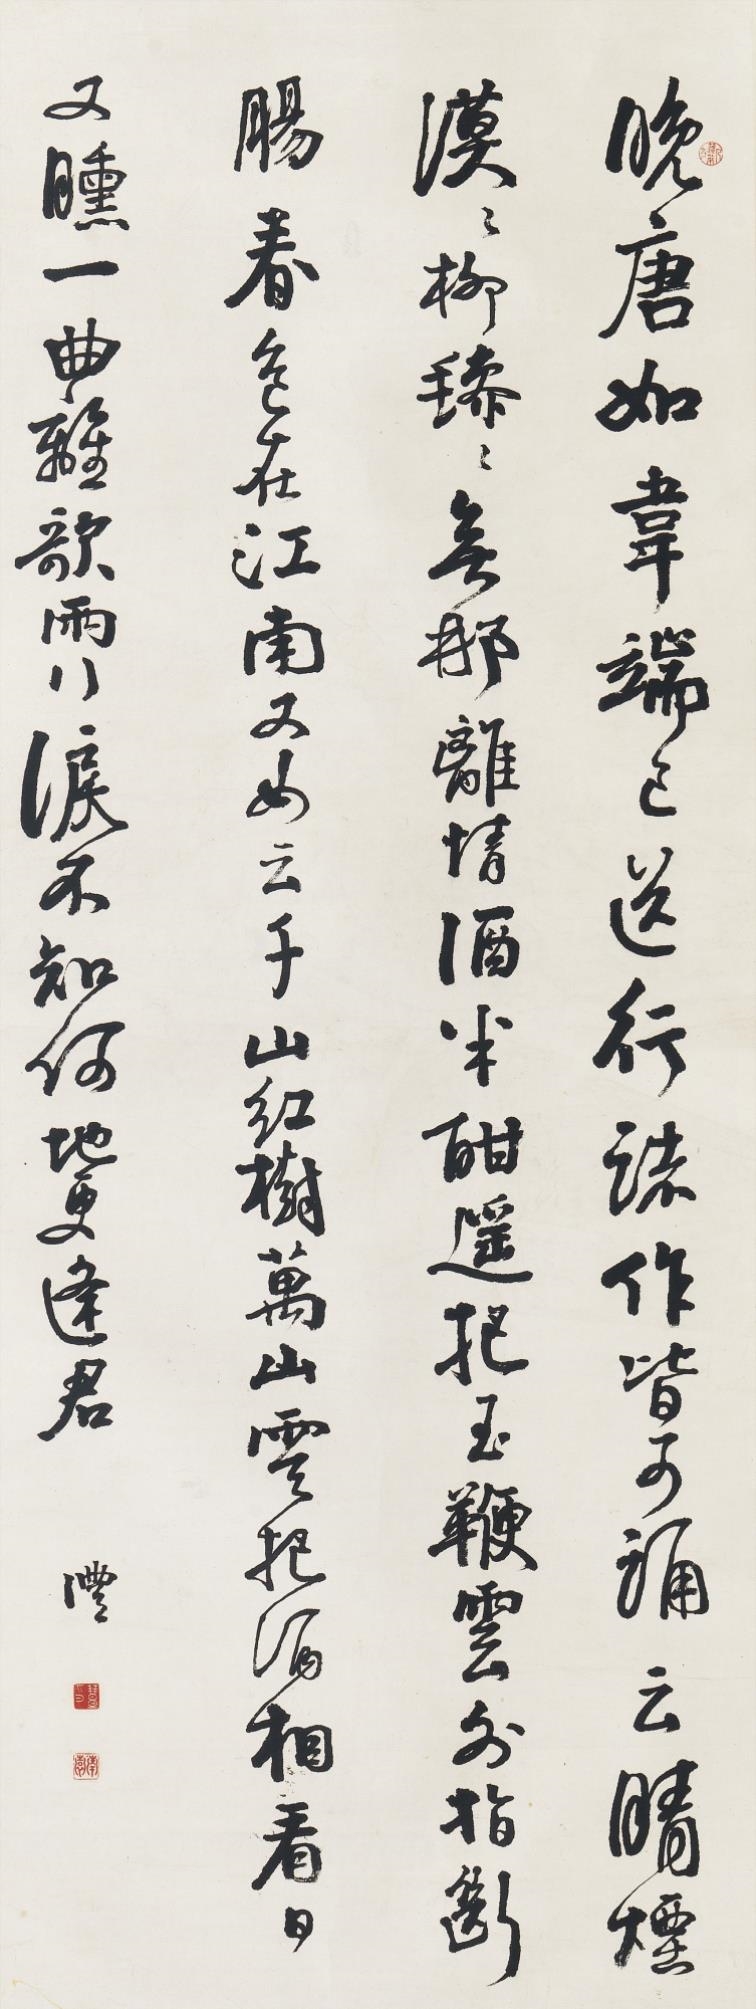 晚唐如韋端己送行諸作皆可誦云晴煙
漠〻柳毿〻無那離情酒半酣遥把玉鞭雲外指斷
腸春色在江南又如云千山紅樹萬山雲把酒相看日
又曛一曲離歌兩行淚不知何地更逢君
澧